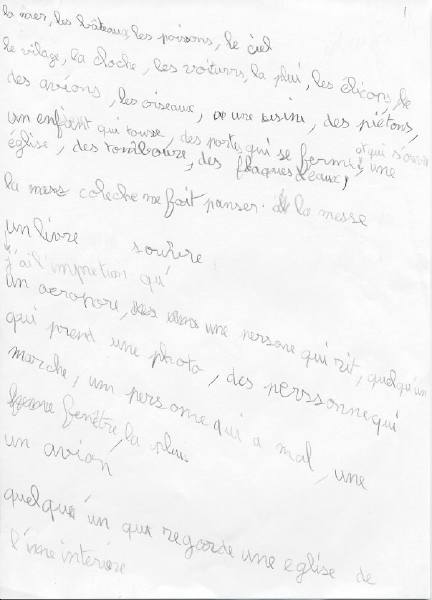 1
la mer, les bâteaux, les poissons, le ciel
le vilage, la cloche, les voiturs, la plui, les éliçons, le
des avions, les oiseaux, une usine, des piétons,
un enfant qui tousse, des portes qui se ferme, et qui s'ouvre
église, des tomboure, des flaques d'eaux, une
la coleche me fait panser la messe
un livre sourire
j'ai l'impretion qu'
un aeroport, une persone qui rit, quelqu'un
qui prend une photo, des perssonne qui
marche, un persone qui a mal, une
fenêtre, la plui
un avion
quelque un qui regarde une eglise de
l'inne interiére